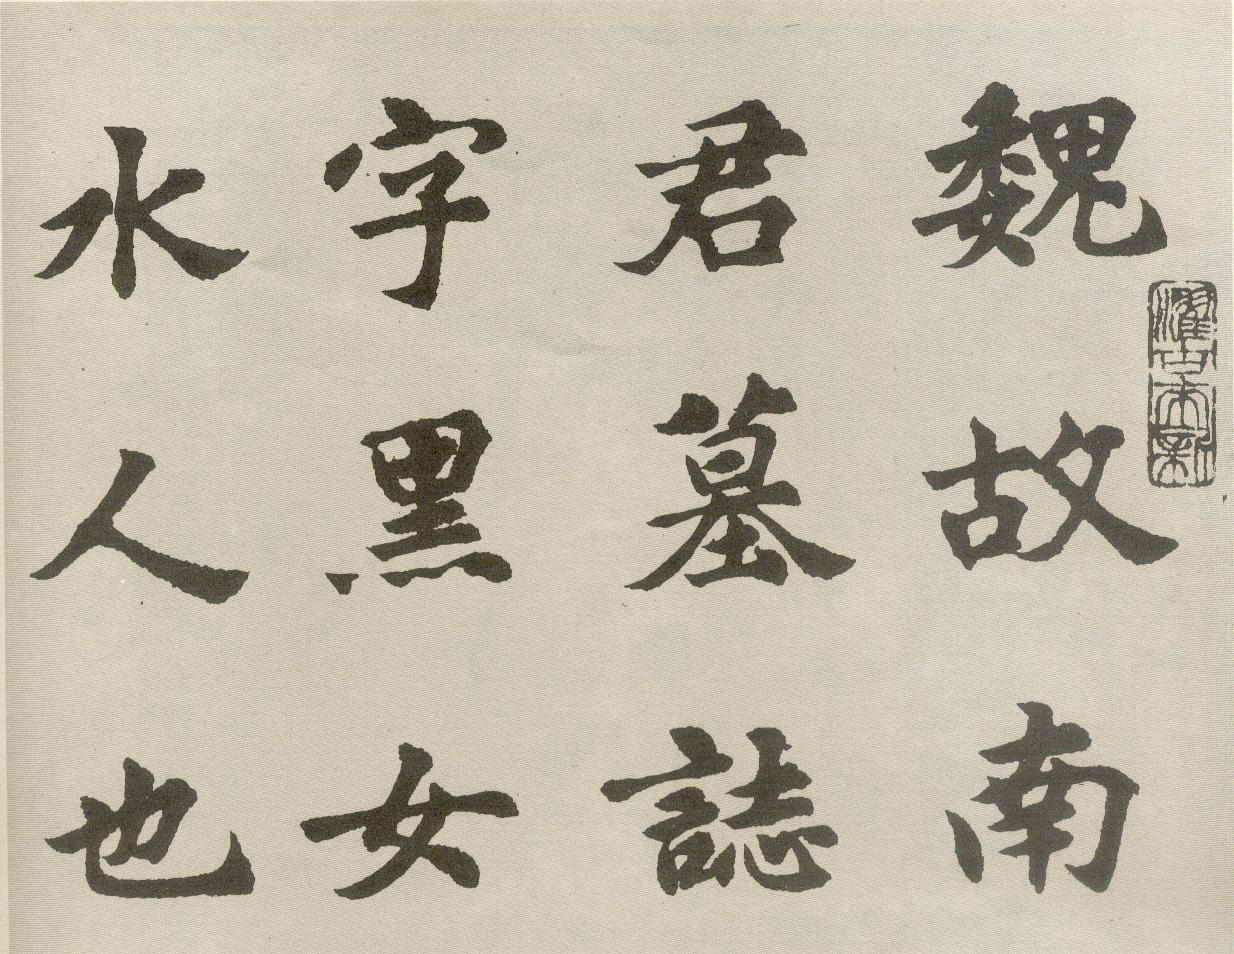 魏故南
君墓誌
字黑女
水人也